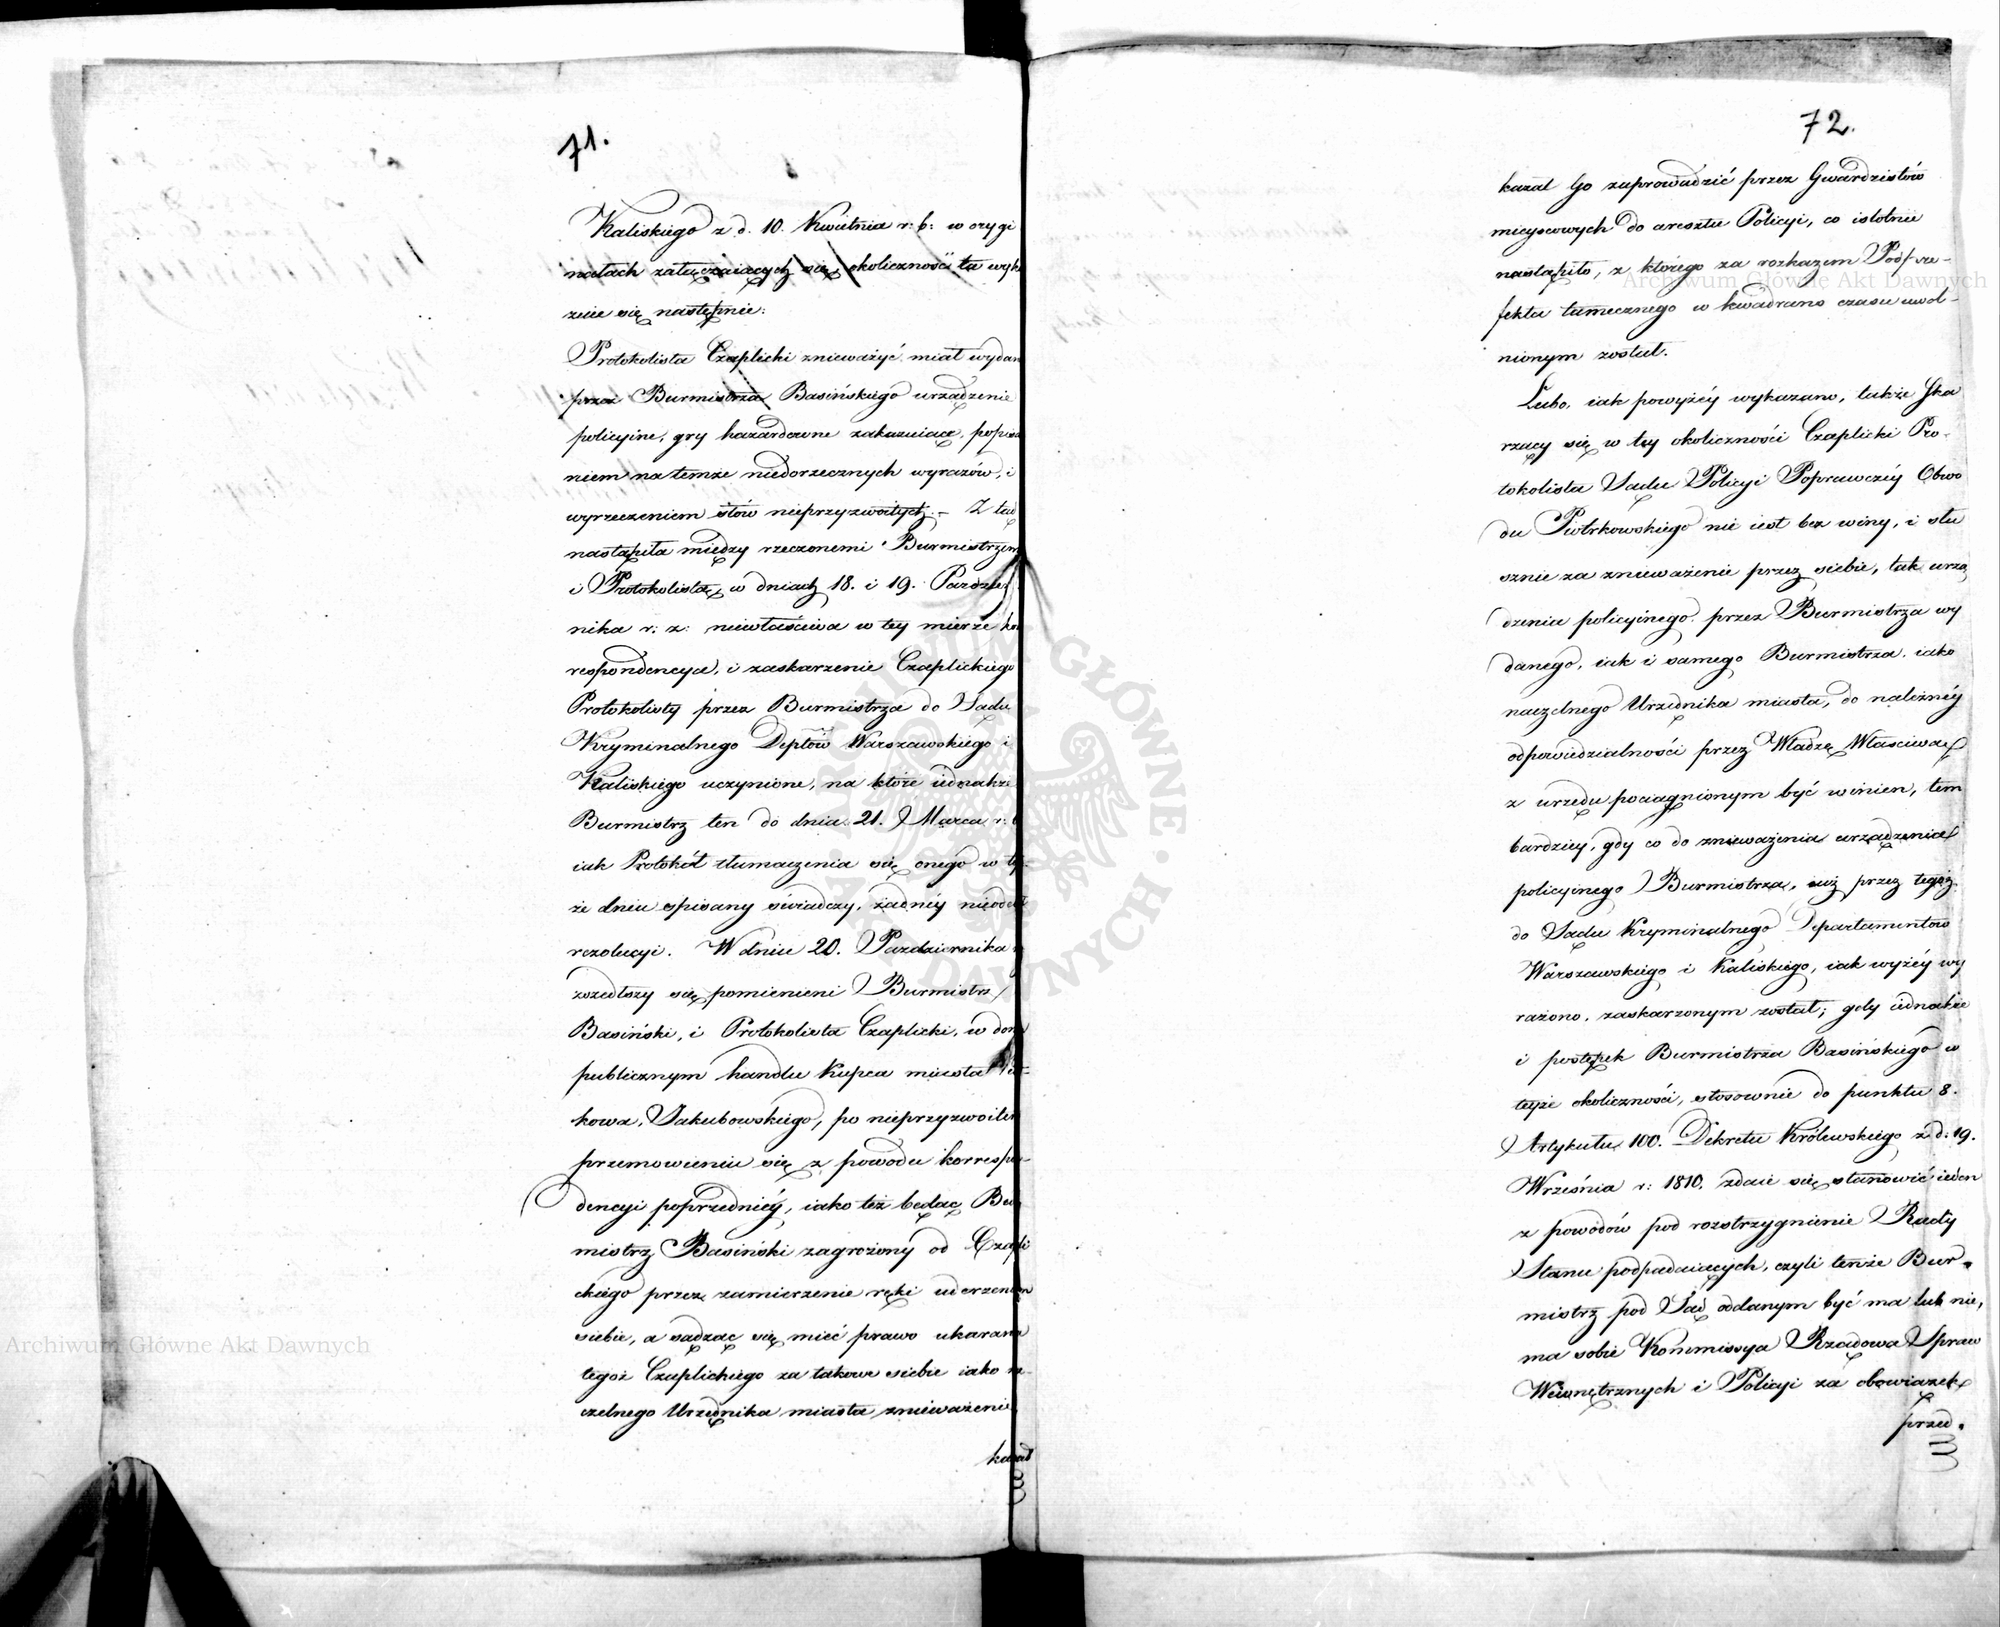 71.
Kaliskiego z d. 10. Kwietnia r: b: w orygi
nałach załączaiących się, okoliczność ta wyk
zuie się następnie:
Protokolista Czaplicki znieważyć miał wydan
przez Burmistrza Basińskiego urządzenie
policyine, gry hazardowne zakazuiące, popisa
niem na temże niedorzecznych wyrazów, i
wyrzeczeniem słów nieprzyzwoitych. – Z tąd
nastąpiła między rzeczonemi Burmistrzem
i Protokolistą, w dniach 18. i 19. Paździer
nika r: z: niewłaściwa w tey mierze ko
respondencya, i zaskarzenie Czaplickiego
Protokolisty przez Burmistrza do Sądu
Kryminalnego Deptów Warszawskiego i
Kaliskiego uczynione, na które iednakże
Burmistrz ten do dnia 21. Marca r: b
iak Protokół tłumaczenia się onego w ty
że dniu spisany świadczy, żadnéy nieode
rezolucyi. W dniu 20. Pazdziernika
zszedłszy się pomienieni Burmistrz
Basiński, i Protokolista Czaplicki, w dom
publicznym handlu Kupca miasta
kowa, Jakubowskiego, po nieprzyzwoitem
przemowieniu się z powodu korrespon-
dencyi poprzedniéy, iako też będąc Bur
mistrz Basiński zagrożony od Czapli
ckiego przez zamierzenie ręki uderzeniem
siebie, a sądząc się mieć prawo ukarania
tegoż Czaplickiego za takowe siebie iako na-
czelnego Urzędnika miasta znieważenie,
kazał
72.
kazał Go zaprowadzić przez Gwardzistów
mieyscowych do aresztu Policyi, co istotnie
nastąpiło, z którego za rozkazem Podpre-
fekta tamecznego w kwadrans czasu uwol-
nionym został.
Lubo, iak powyżéy wykazano, także Ska
rzący się w tey okoliczności Czaplicki Pro-
tokolista Sądu Policyi Poprawczéy Obwo
du Piotrkowskiego nie iest bez winy, i słu
sznie za znieważenie przez siebie, tak urzą
dzenia policyinego przez Burmistrza wy
danego, iak i samego Burmistrza, iako
naczelnego Urzędnika miasta, do należnéy
odpowiedzialności przez Władzę Właściwą
z urzędu pociągnionym być winien, tem
bardziey, gdy co do znieważenia urządzenia
policyinego Burmistrza, iuż przez tegoż
do Sądu Kryminalnego Departamentów
Warszawskiego i Kaliskiego, iak wyżéy wy
rażono, zaskarzonym został; gdy iednakże
i postępek Burmistrza Basińskiego w
teyże okoliczności, stosownie do punktu 8.
Artykułu 100. Dekretu Królewskiego z d: 19.
Września r: 1810. zdaie się stanowić ieden
z powodów pod rozstrzygnienie Rady
Stanu podpadaiących, czyli tenże Bur-
mistrz pod Sąd oddanym być ma lub nie,
ma sobie Kommissya Rządowa Spraw
Wewnętrznych i Policyi za obowiązek
przed.
Archiwum Główne Akt Dawnych
Archiwum Główne Akt Dawnych
ARCHIWUM GŁÓWNE AKT DAWNYCH